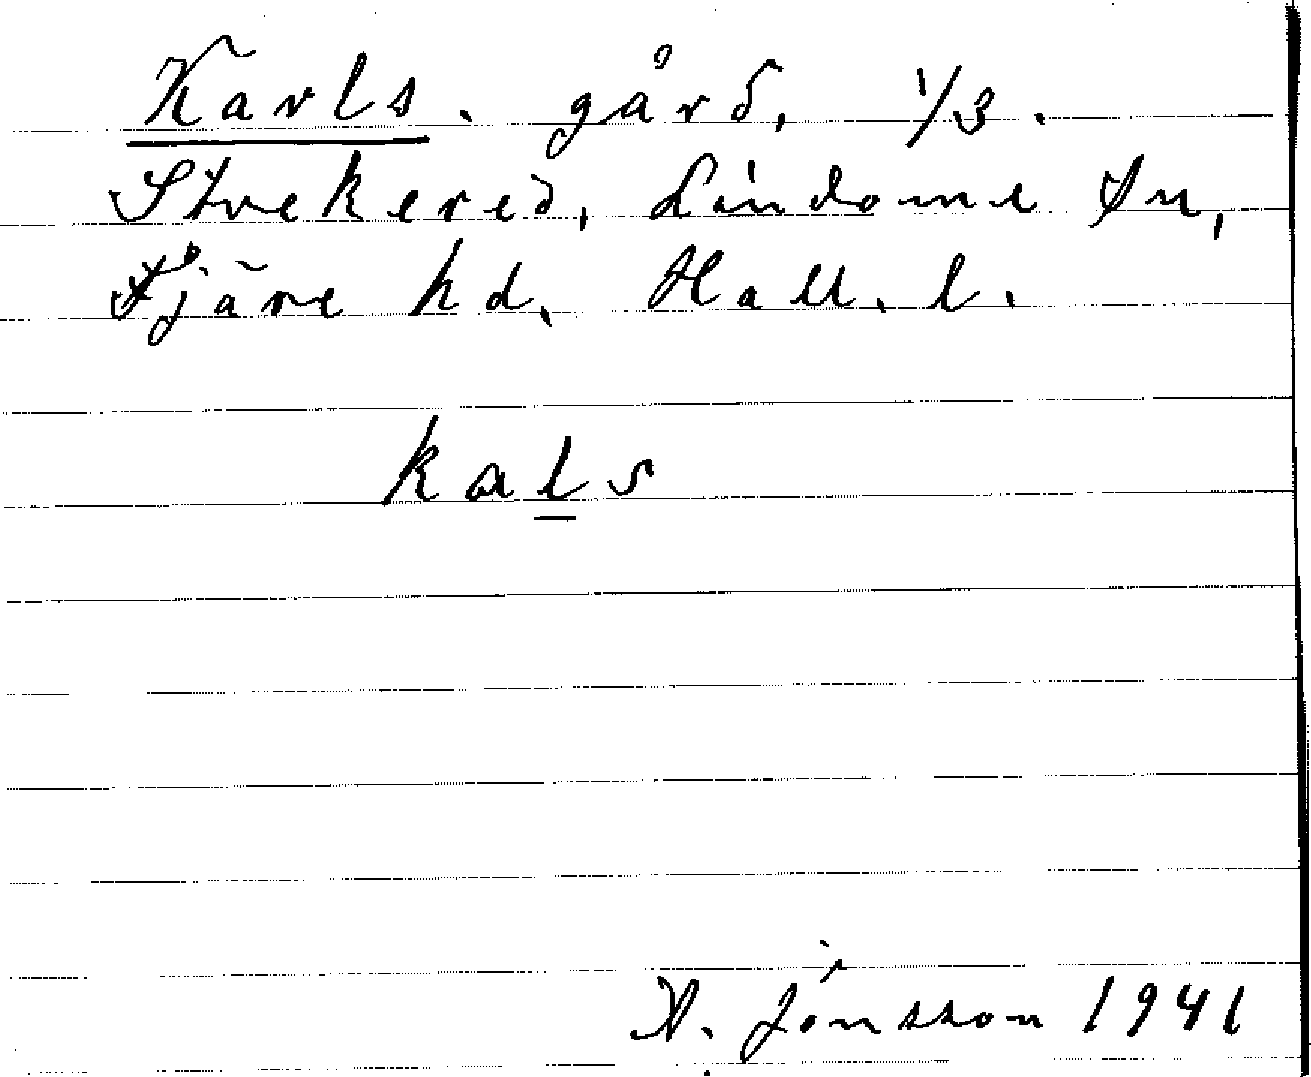 Karls. gård, 1/3.
Strekered, Lindome sn,
Fjäre hd. Hall. l.
kals
A. Jonsson 1941